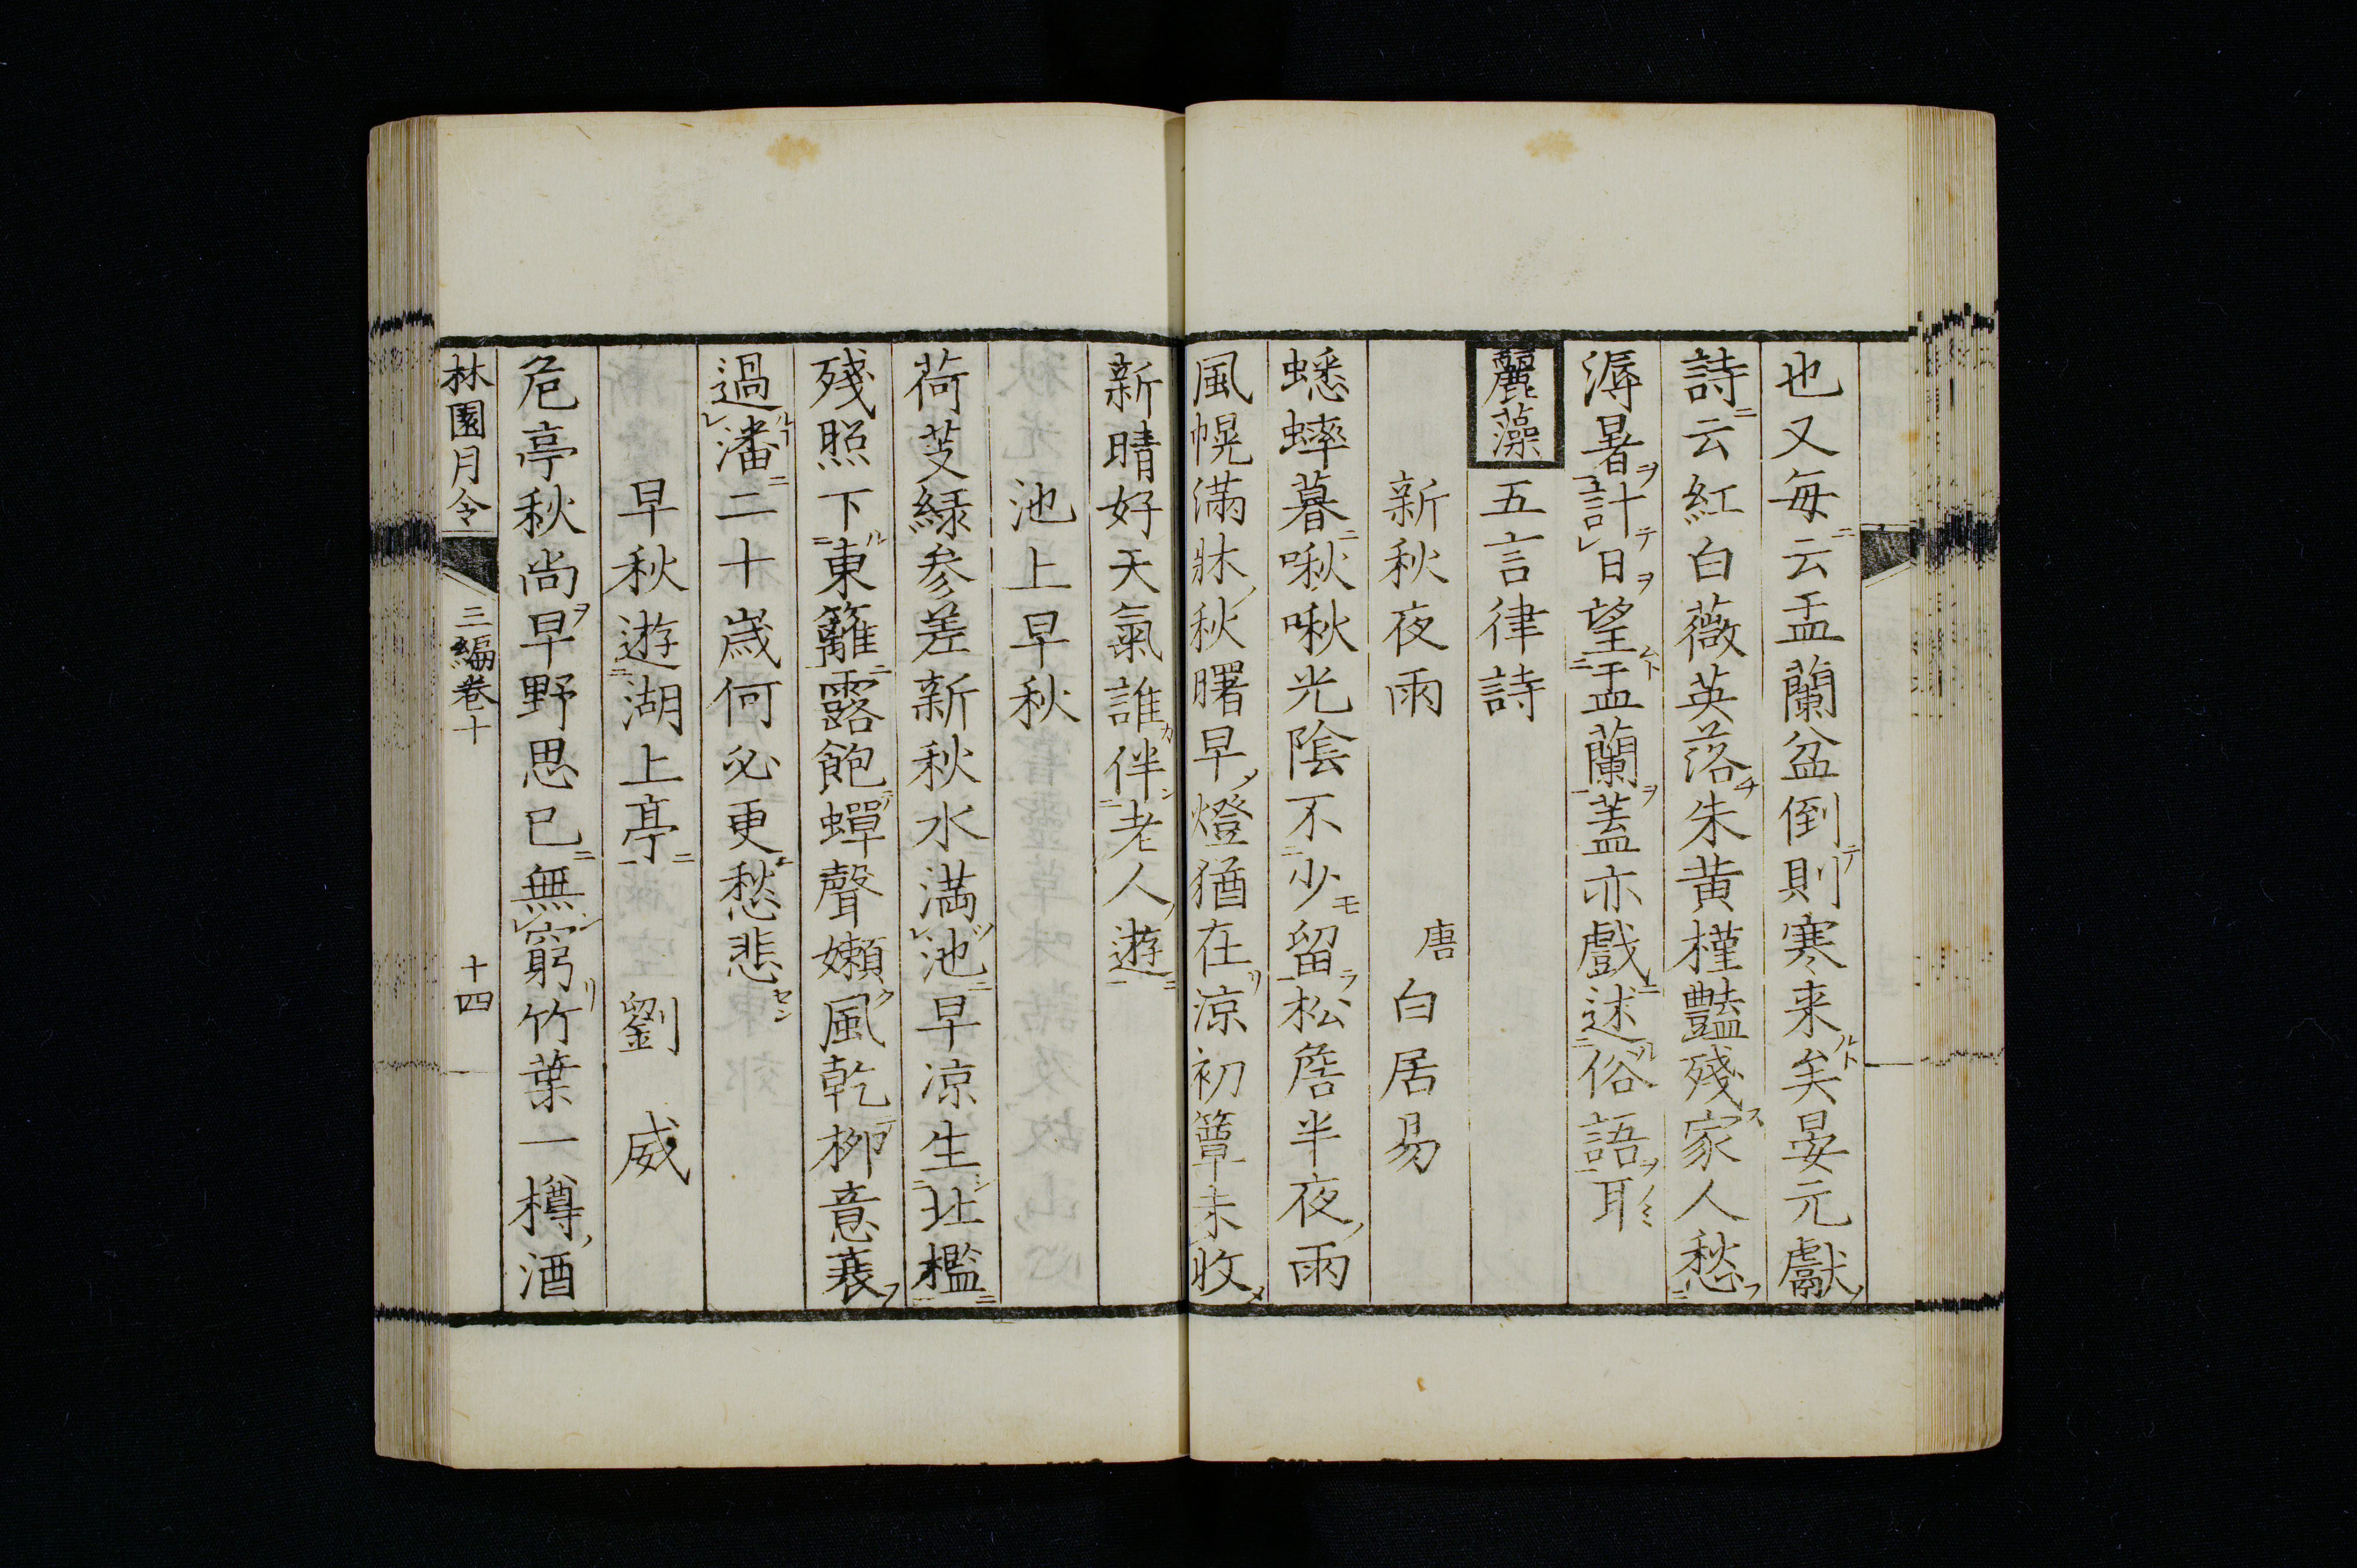 也又毎云盂蘭盆倒則寒来矣晏元獻
詩云紅白薇英落朱黄槿豔殘家人愁
溽暑計日望盂蘭蓋亦戲述俗語耳
麗藻 五言律詩
新秋夜雨 唐 白居易
蟋蟀暮啾啾光陰不少留松詹半夜雨
風幌滿牀秋曙早燈猶在凉初簟未收
新晴好天氣誰伴老人遊
池上早秋
荷芰緑参差新秋水満池早凉生北檻
殘照下東籬露飽蟬聲嬾風乾栁意衰
過潘二十歳何必更愁悲
早秋遊湖上亭 劉威
危亭秋尚早野思已無窮竹葉一樽酒
林園月令 三編巻十 十四